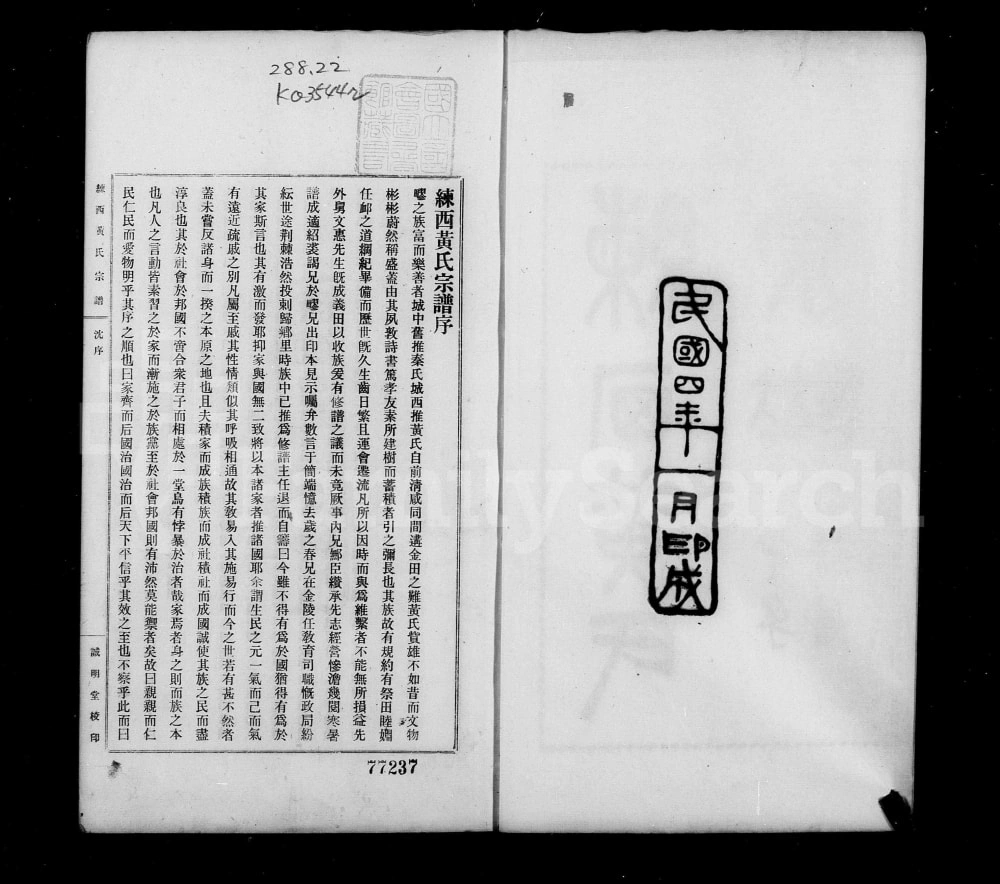 民國四年十一月印成
288.22
國立國會圖書館藏書
練西黃氏宗譜序
嘐之族富而樂善者城中舊推秦氏城西推黃氏自前清咸同間遘金田之難黃氏貲雄不如昔而文物
彬彬蔚然稱盛蓋由其夙敦詩書篤孝友素所建樹而蓄積者引之彌長也其族故有規約有祭田睦婣
任卹之道綱紀畢備而歷世旣久生齒日繁且運會遷流凡所以因時而與爲維繫者不能無所損益先
外舅文惠先生旣成義田以收族爰有修譜之議而未竟厥事內兄鄦臣纘承先志經營慘澹幾閱寒暑
譜成適紹裘謁兄於嘐兄出印本見示囑弁數言于簡端憶去歲之春兄在金陵任敎育司職慨政局紛
紜世途荆棘浩然投劾歸鄉里時族中已推爲修譜主任退而自籌曰今雖不得有爲於國猶得有爲於
其家斯言也其有激而發耶抑家與國無二致將以本諸家者推諸國耶余謂生民之元一氣而己而氣
有遠近疏戚之別凡屬至戚其性情類似其呼吸相通故其敎易入其施易行而今之世若有甚不然者
蓋未嘗反諸身而一揆之本原之地也且夫積家而成族積族而成社積社而成國誠使其族之民而盡
淳良也其於社會於邦國不啻合衆君子而相處於一堂烏有悖暴於治者哉家焉者身之則而族之本
也凡人之言動皆素習之於家而漸施之於族黨至於社會邦國則有沛然莫能禦者矣故曰親親而仁
民仁民而愛物明乎其序之順也曰家齊而后國治國治而后天下平信乎其效之至也不察乎此而曰
練西黃氏宗譜
沈序
誠明堂梓印
77237